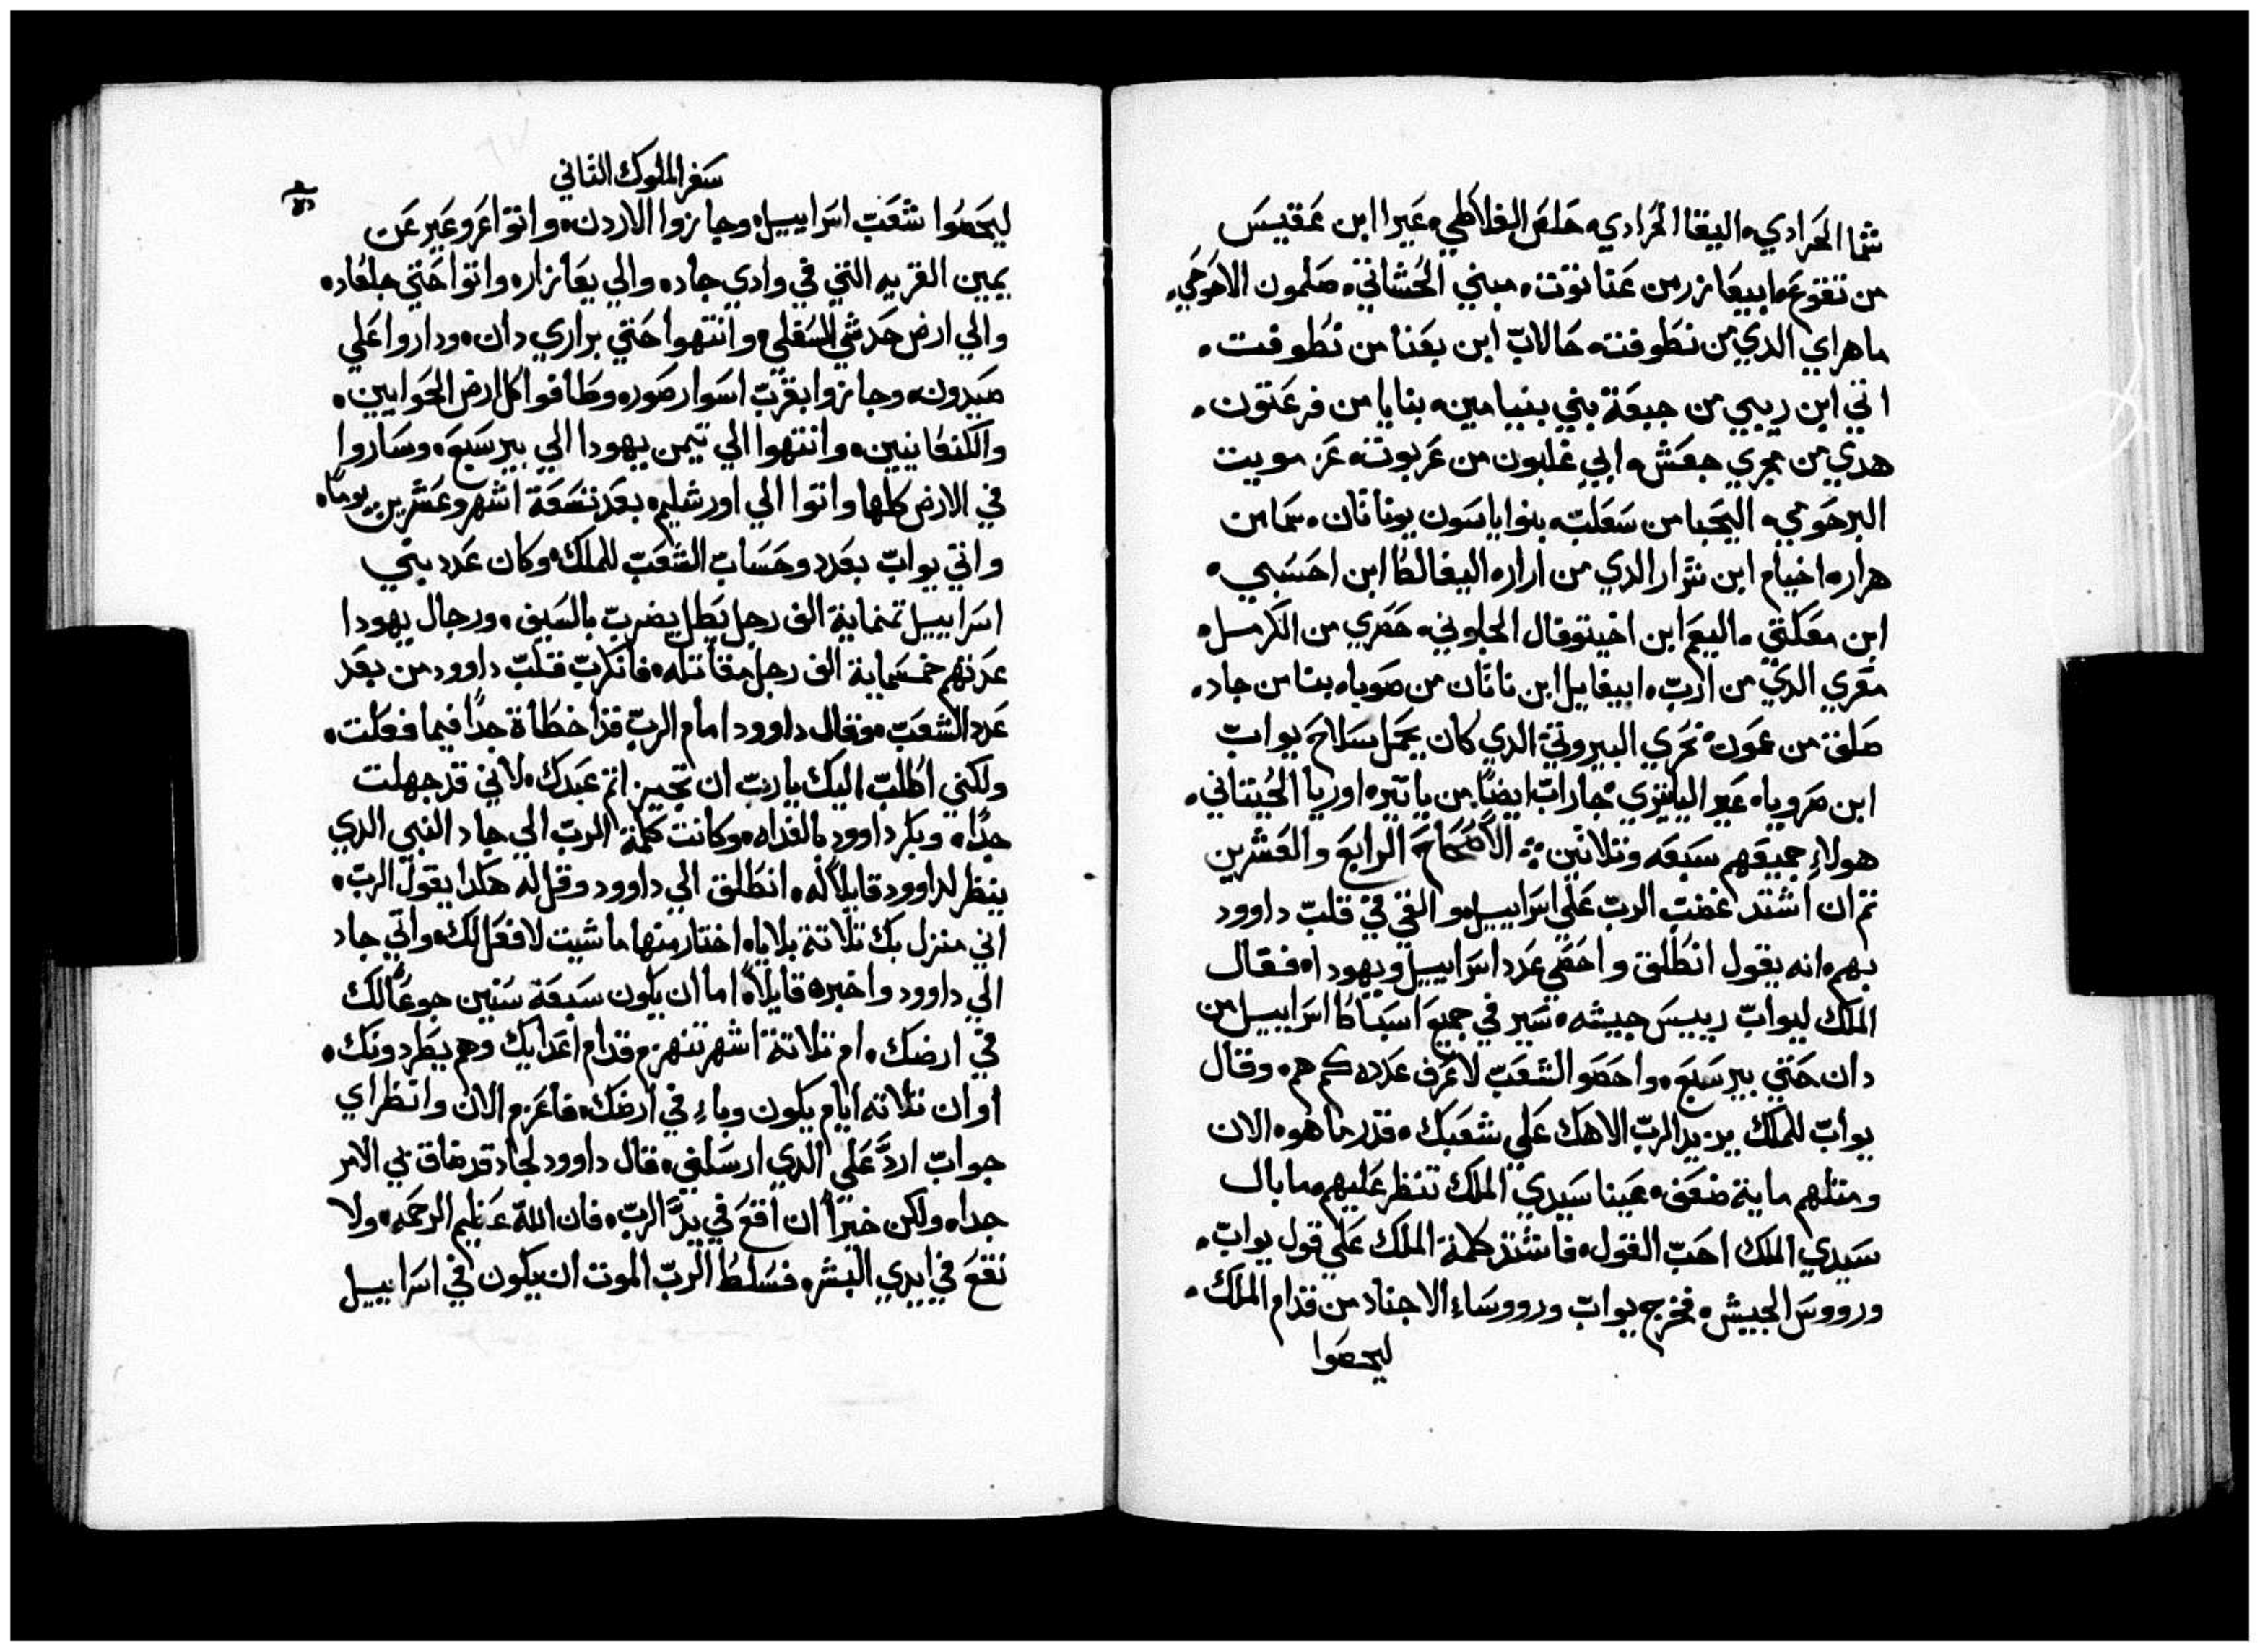 شما الحرادي. اليقا الحرادي. حلص الفلاطي. عيرا ابن عقيس
من تقوع. ابيعازر من عناتوت. مبني الحشاتي. صلمون الاحوحي.
ماهراي الدي من نطوفته. حالاب ابن بعنا من نطوفت.
اتي ابن ريبي من جبعة بني بنيامين. بنايا من فرعتون.
هدي من مجري جعش. ابي غلبون من عربوته. عزمويت
البرحومي. اليحبا من سعلب. بنوا ياسون يوناتان. سما من
هراره. اخيام ابن شرار الدي من اراره. اليفالط ابن احسبي.
ابن معكتي. اليعم ابن اخيتوفال الجلوني. حصري من الكرمل.
مقري الدي من ارب. ايغاييل ابن ناتان من صوباه. بنا من جاد.
صلف من عمون. نحري البيروتي الدي كان يحمل سلاح يواب
ابن صروياه. عير الياتيري. جاراب ايضًا من ياتير. اوريا الحيتاني.
هولاء جميعهم سبعه وتلاتين. الاصحاح الرابع والعشرين
تم ان اشتد غضب الرب علي اسراييل. والقي في قلب داوود
بهم. انه يقول انطلق واحصي عدد اسراييل ويهودا. فقال
الملك ليواب رييس جيشه. سير في جميع اسباط اسراييل من
دان حتي بير سبع. واحصو الشعب لاعرف عدده كم هم. وقال
يواب للملك يزيد الرب الاهك علي شعبك. قدر ما هو. الان
ومتلهم ماية ضعف. عينا سيدي الملك تنظر عليهم. ما بال
سيدي الملك احب القول. فاشتد كلمة الملك علي قول يواب.
ورووس الجيش. فخرج يواب ورووساء الاجناد من قدام الملك.
ليحصوا
سفر الملوك التاني
ليحصوا شعب اسراييل. وجازوا الاردن. واتوا عروعير عن
يمين القريه التي في وادي جاد. والي يعازار. واتوا حتي جلعاد.
والي ارض حدشي السفلي. وانتهوا حتي براري دان. وداروا علي
صيدون. وجازوا بقرب اسوار صور. وطافوا كل ارض الحوايين.
والكنعانيين. وانتهوا الي تيمن يهودا الي بير سبع. وساروا
في الارض كلها واتوا الي اورشليم. بعد تسعة اشهر وعشرين يومًا.
واتي يواب بعدد وحساب الشعب للملك. وكان عدد بني
اسراييل تمنماية الف رجل بطل يضرب بالسيف. ورجال يهودا
عدتهم خمسماية الف رجل مقاتله. فانكرب قلب داوود من بعد
عدد الشعب. فقال داوود امام الرب قد اخطاة جدًا فيما فعلت.
ولكني اطلب اليك يارب ان تجيز اتم عبدك. لاني قد جهلت
جدًا. وبكر داوود بالغداه. وكانت كلمة الرب الي جاد النبي الدي
ينظر لداوود قايلًا له. انطلق الي داوود وقل له هكدا يقول الرب.
اني منزل بك تلاتة بلايا. اختار منها ما شيت لافعل لك. واتي جاد
الي داوود واخبره قايلًا. اما ان يكون سبعة سنين جوعًا لك
في ارضك. ام تلاتة اشهر تنهزم قدام اعدايك وهم يطردونك.
او ان تلاته ايام يكون وباء في ارضك. فاعزم الان وانظر اي
جواب اردَّ علي الدي ارسلني. فقال داوود لجاد قد ضاق بي الامر
جدا. ولكن خيرًا ان اقع في يدَّ الرب. فان الله عظيم الرحمه. ولا
نقع في ايدي البشر. فسلط الرب الموت ان يكون في اسراييل